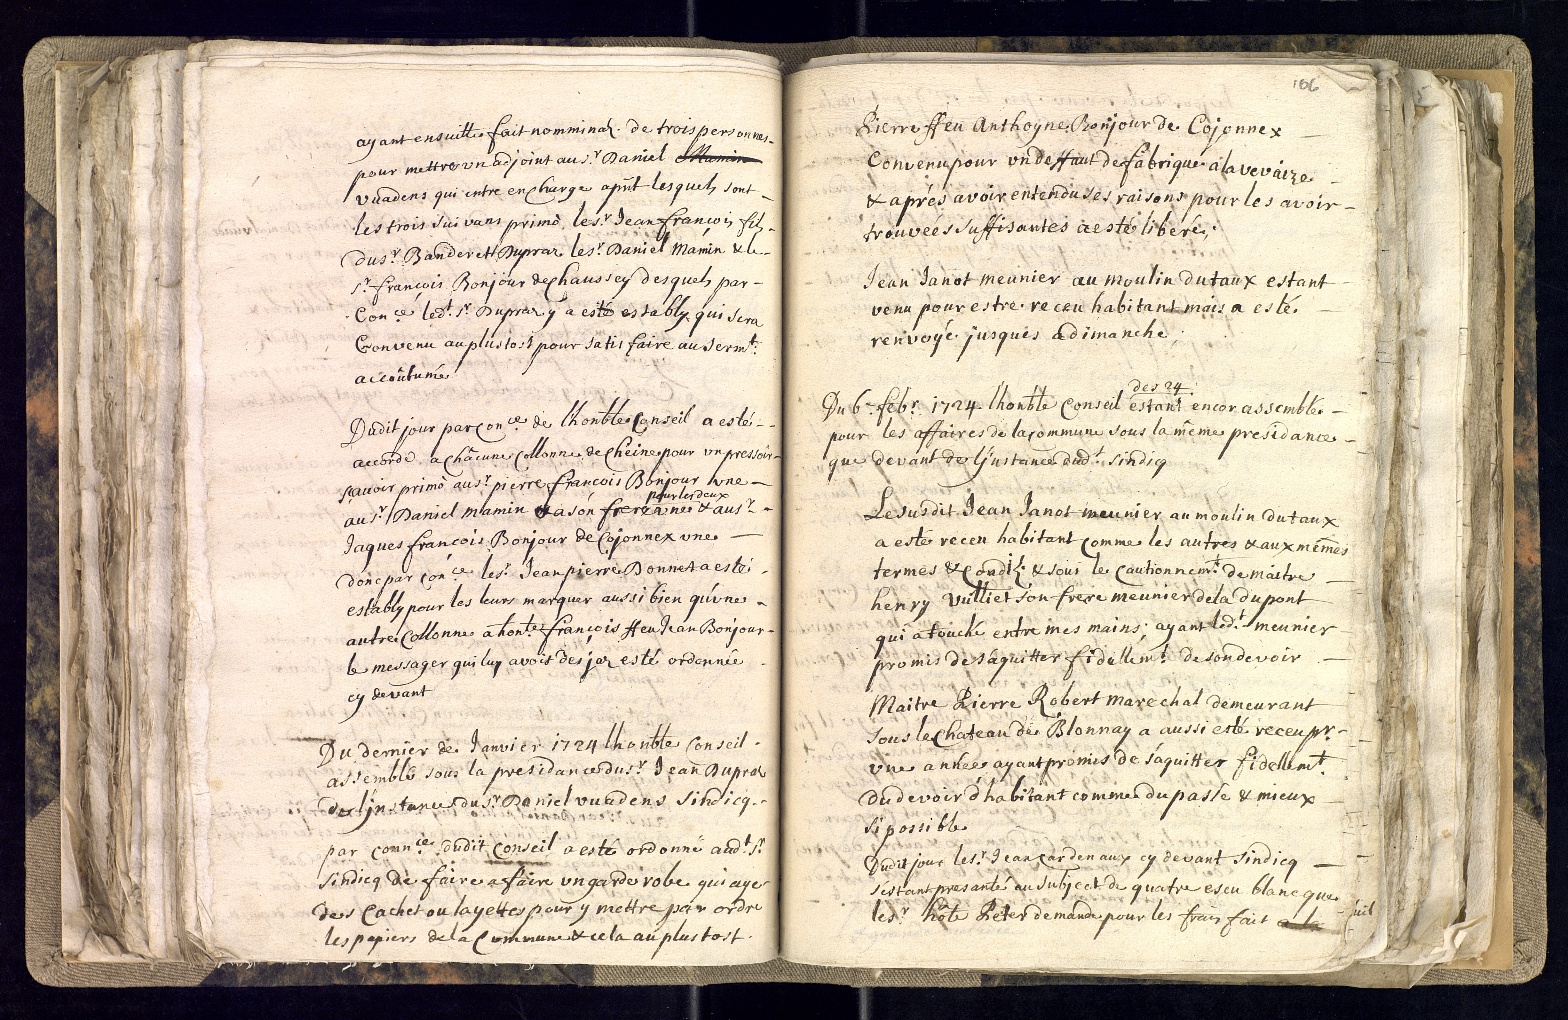 ayant ensuitte fait nominaõ. de trois personnes
pour mettre vn adjoint au sr. Daniel Mamin
vuadens qui entre en Charge aprit lesquels sont
les trois suivans primò, le sr. Jean françois filz
du sr. Banderet Dupraz le sr. Daniel Mamin & le
sr. françois Bonjour de Chaussey desquels par
Conce. ledt. sr. Dupraz y a esté establÿ qui sera
Convenu au plustost pour satisfaire au sermt.
accoûtumé
Dudit jour par conce. de lhonble Conseil a esté
accordé a châcune Collonne de Cheine pour vn pressoir
scavoir primò au sr. pierre françois Bonjour vne
pour les deux
au sr. Daniel Mamin & a són frere vne & au sr.
Jaques françois Bonjour de Cojonnex vne
donc par conce. le sr. Jean pierre Bonnet a esté
establÿ pour les leurs marquer aussi bien qu'vne
autre Collonne a honte. françois ffeu Jean Bonjour
le messager qui luy avoit desja esté ordonnée
cy devant
Du dernier de Janvier 1724 lhonble Conseil
assemblé sous la presidance du sr. Jean Dupraz
de l'jnstance du sr. Daniel vuadens Sindicq
par connce. dudit Conseil a esté ordonné aud.t sr.
Sindicq de faire a faire vn garde robe qui aye
des Caches ou layettes pour y mettre par ordre
les papiers de la Commune & cela au plustost.
186
Pierre ffeu Anthoyne Bonjour de Cojonnex
Convenu pour vn deffaut de fabrique a la vevaize
& aprés avoir entendu ses raisons pour les avoir
trouvées suffisantes a esté liberé;
Jean Janot meunier au moulin du taux estant
venu pour estre receu habitant mais a esté
renvoyé jusques a dimanche;
des 24
Du 6e. febr. 1724 lhonble Conseil estant encor assemblé
pour les affaires de la commune sous la même presidance
que devant de l'jnstance dud.t sindicq
Le susdit Jean Janot meunier au moulin du taux
a esté receu habitant comme les autres & aux mêmes
termes & Condiõ & sous le cautionnemt. de maitre
henry Vulliet son frere meunier de la dupont
qui a touché entre mes mains; ayant ledt. meunier
promis de s'aquitter fidellemt. de son devoir
Maitre Pierre Robert marechal demeurant
sous le Chateau de Blonnay a aussi esté receu pr.
vne année ayant promis de s'aquitter fidellemt.
du devoir d'habitant comme du passé & mieux
si possible
Dudit jour le sr. Jean Cardenaux cy devant Sindicq
s'estant presanté au subject de quatre escu blanc que
le sr. hôte Peter demande pour les frais fait a la